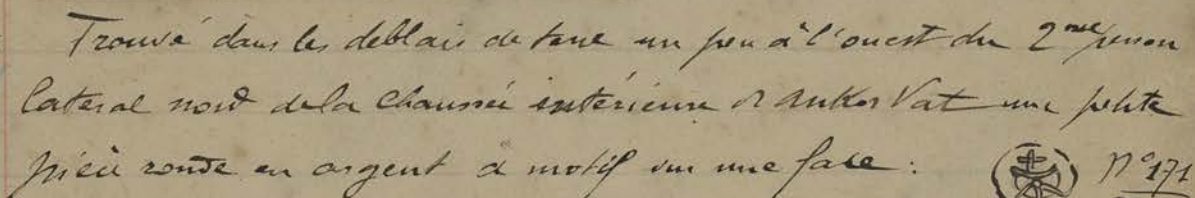 Trouvé dans les déblais de terre un peu à l'ouest du 2me perron
lateral nord de la chaussée intérieure d'Ankor Vat une petite
pièce ronde en argent à motif sur une face : N° 171